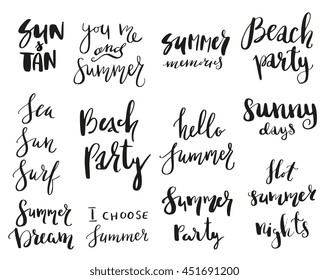 SUN
&
TAN
you me
and
Summer
SUMMER
memories
Beach
party
Sea
Sun
Surf
Beach
Party
hello
Summer
Sunny
days
Summer
Dream
I CHOOSE
Summer
Summer
Party
Hot
summer
nights
www.shutterstock.com · 451691200